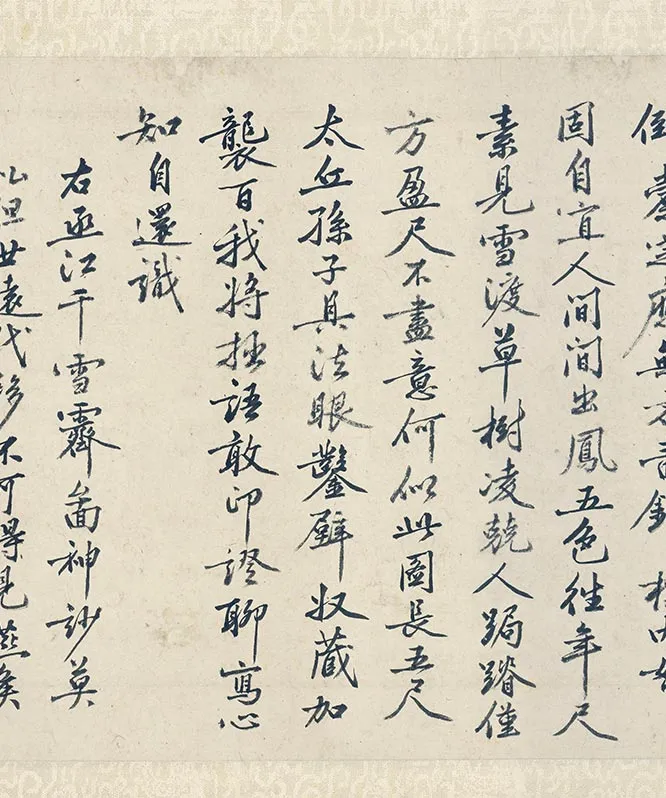 固自宜人間間出鳳五色往年尺
素見雪渡草樹凌兢人跼蹐僅
方盈尺不盡意何似此圖長五尺
太丘孫子具法眼鑿壁收藏加
襲百我將拯語敢印證聊寫心
知自還識
右丞江干雪霽啚神妙莫
以但世遠代移不可得見燕矦